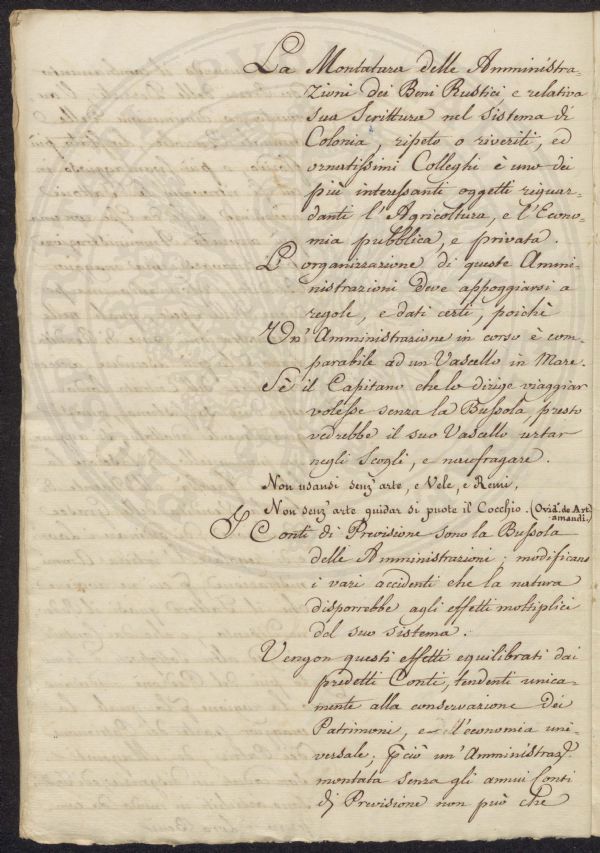 La Montatura delle Amministra-
zioni dei Beni Rustici, e relativa
sua Scrittura nel sistema di
Colonia, ripeto o riveriti, ed
ornatissimi Colleghi è uno dei
più interessanti oggetti riguar-
danti l'Agricoltura, e l'Econo-
mia pubblica, e privata.
L'organizzazione di queste Ammi-
nistrazioni deve appoggiarsi a
regole, e dati certi, poichè
Un'Amministrazione in corso è com-
parabile ad un Vascello in Mare.
Sè il Capitano che lo dirige viaggiar
volesse senza la Bussola presto
vedrebbe il suo Vascello urtar
negli Scogli, e naufragare.
Non usansi senz'arte, e Vele, e Remi,
Non senz'arte guidar si puote il Cocchio. (Ovid. de Art.
amandi.)
I Conti di Previsione sono la Bussola
delle Amministrazioni; modificano
i vari accidenti che la natura
disporrebbe agli effetti moltiplici
del suo sistema.
Vengon questi effetti equilibrati dai
predetti Conti, tendenti unica-
mente alla conservazione dei
Patrimoni, e l'economia uni-
versale; pciò un'Amministraz.
montata senza gli annui Conti
di Previsione non può che